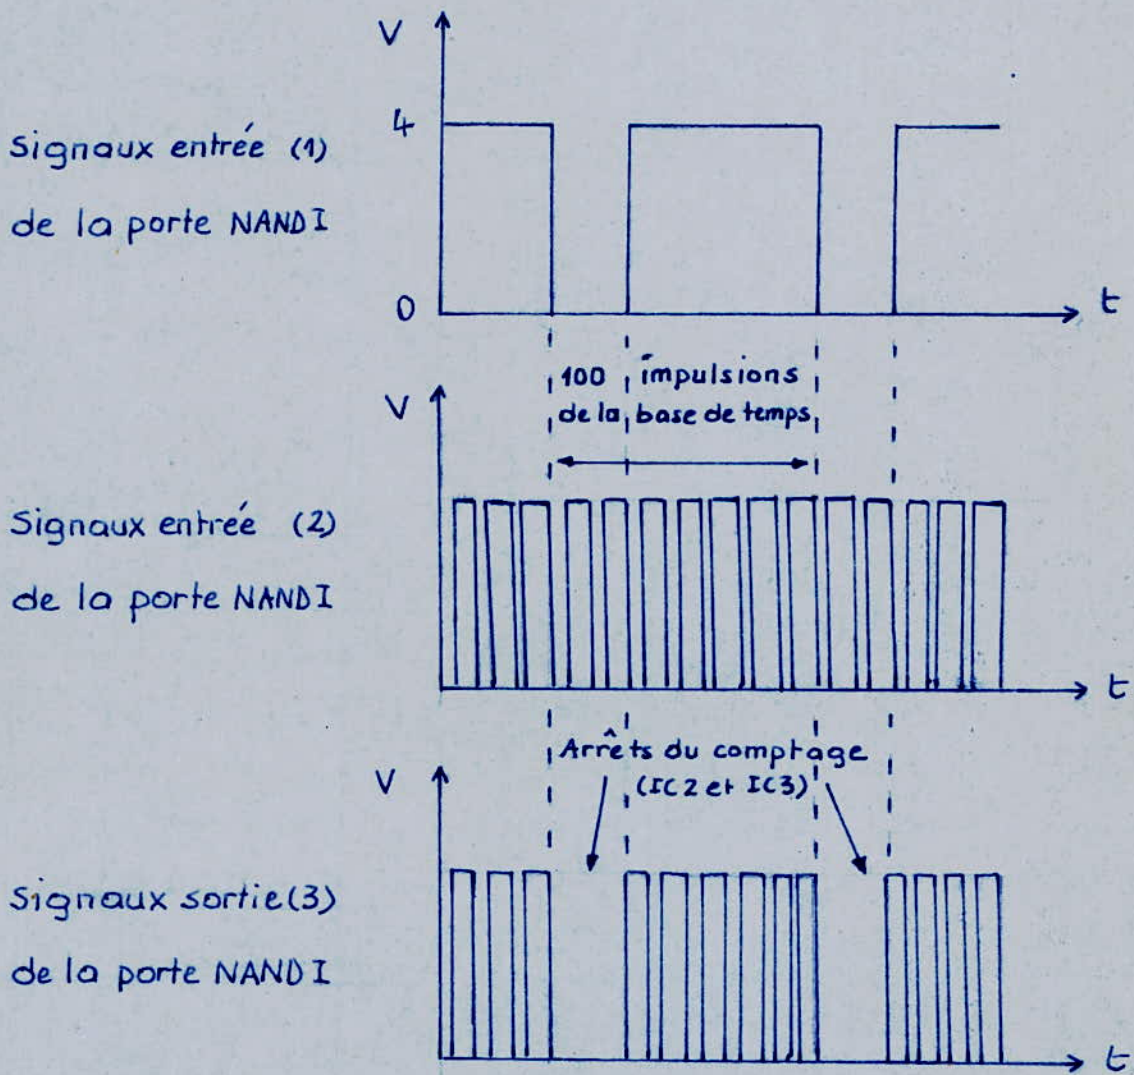 V
4
Signaux entrée (1)
de la porte NAND I
0
t
100 impulsions
de la base de temps
V
Signaux entrée (2)
de la porte NAND I
t
Arrêts du comptage
(IC2 et IC3)
V
Signaux sortie (3)
de la porte NAND I
t